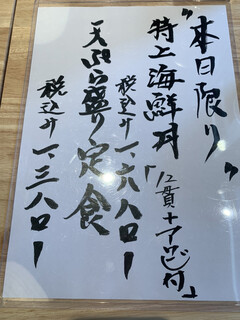 "本日限り"
特上海鮮丼「12貫+アラ汁付」
税込み 一、六八〇ー
天ぷら盛り定食
税込み 一、三八〇ー